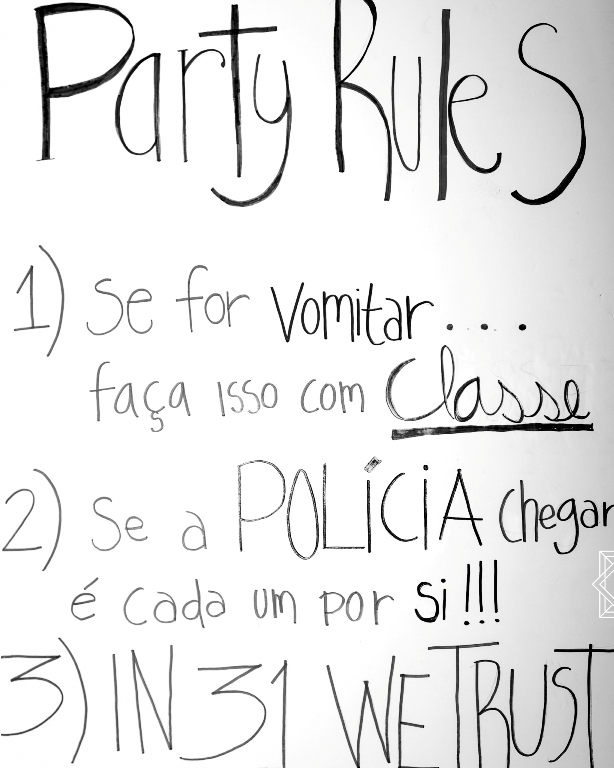 Party Rules
1) Se for Vomitar....
faça isso com Classe
2) Se a POLÍCIA chegar
é cada um por si!!!
3) IN 31 WE TRUST